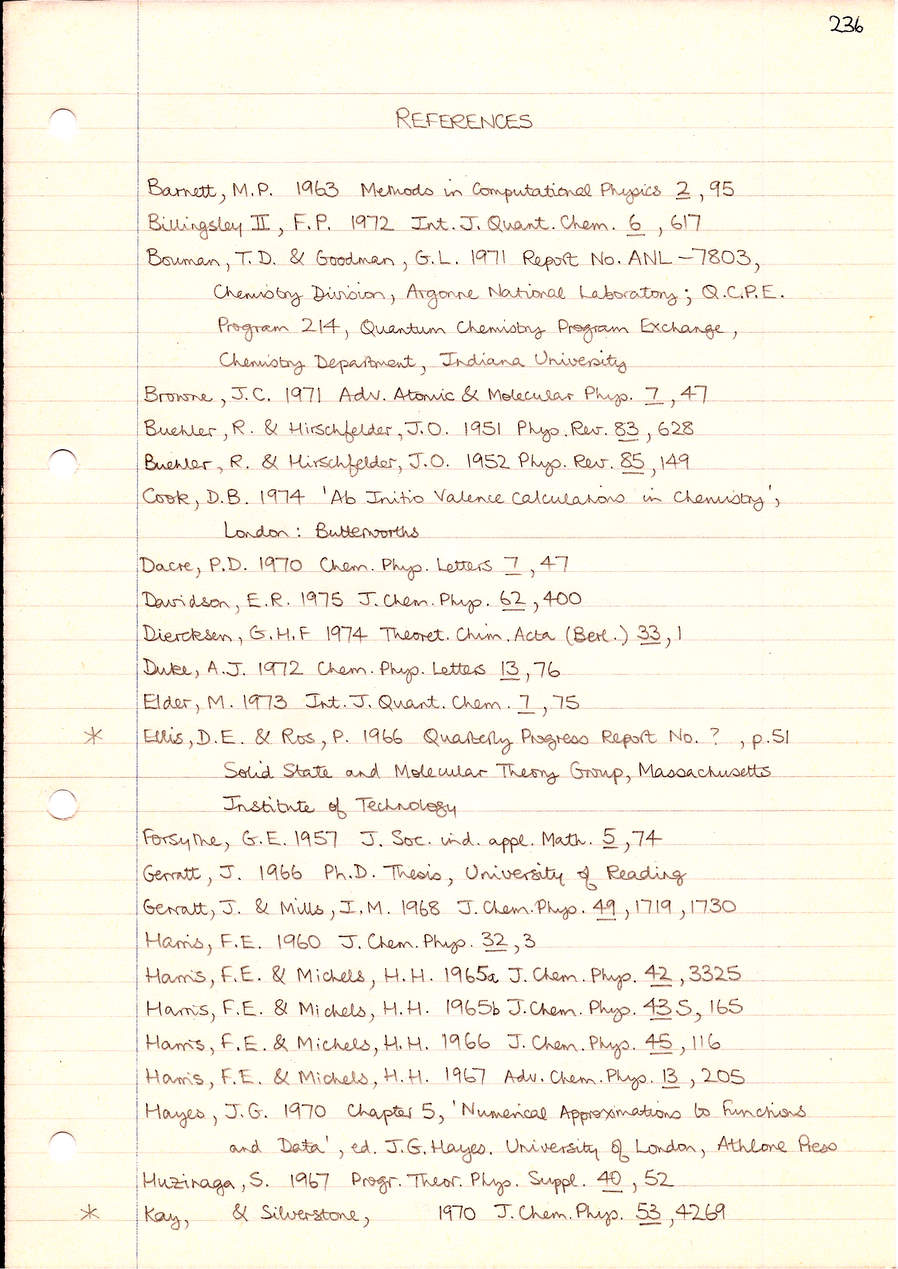 236
REFERENCES
Barnett, M.P. 1963 Methods in Computational Physics 2, 95
Billingsley II, F.P. 1972 Int. J. Quant. Chem. 6, 617
Bouman, T.D. & Goodman, G.L. 1971 Report No. ANL-7803,
Chemistry Division, Argonne National Laboratory; Q.C.P.E.
Program 214, Quantum Chemistry Program Exchange,
Chemistry Department, Indiana University
Browne, J.C. 1971 Adv. Atomic & Molecular Phys. 7, 47
Buehler, R. & Hirschfelder, J.O. 1951 Phys. Rev. 83, 628
Buehler, R. & Hirschfelder, J.O. 1952 Phys. Rev. 85, 149
Cook, D.B. 1974 'Ab Initio Valence Calculations in Chemistry',
London: Butterworths
Dacre, P.D. 1970 Chem. Phys. Letters 7, 47
Davidson, E.R. 1975 J. Chem. Phys. 62, 400
Diercksen, G.H.F 1974 Theoret. Chim. Acta (Berl.) 33, 1
Duke, A.J. 1972 Chem. Phys. Letters 13, 76
Elder, M. 1973 Int. J. Quant. Chem. 7, 75
* Ellis, D.E. & Ros, P. 1966 Quarterly Progress Report No. ?, p.51
Solid State and Molecular Theory Group, Massachusetts
Institute of Technology
Forsythe, G.E. 1957 J. Soc. ind. appl. Math. 5, 74
Gerratt, J. 1966 Ph.D. Thesis, University of Reading
Gerratt, J. & Mills, I.M. 1968 J. Chem. Phys. 49, 1719, 1730
Harris, F.E. 1960 J. Chem. Phys. 32, 3
Harris, F.E. & Michels, H.H. 1965a J. Chem. Phys. 42, 3325
Harris, F.E. & Michels, H.H. 1965b J. Chem. Phys. 43 S, 165
Harris, F.E. & Michels, H.H. 1966 J. Chem. Phys. 45, 116
Harris, F.E. & Michels, H.H. 1967 Adv. Chem. Phys. 13, 205
Hayes, J.G. 1970 Chapter 5, 'Numerical Approximations to Functions
and Data', ed. J.G. Hayes. University of London, Athlone Press
Huzinaga, S. 1967 Progr. Theor. Phys. Suppl. 40, 52
* Kay, & Silverstone, 1970 J. Chem. Phys. 53, 4269